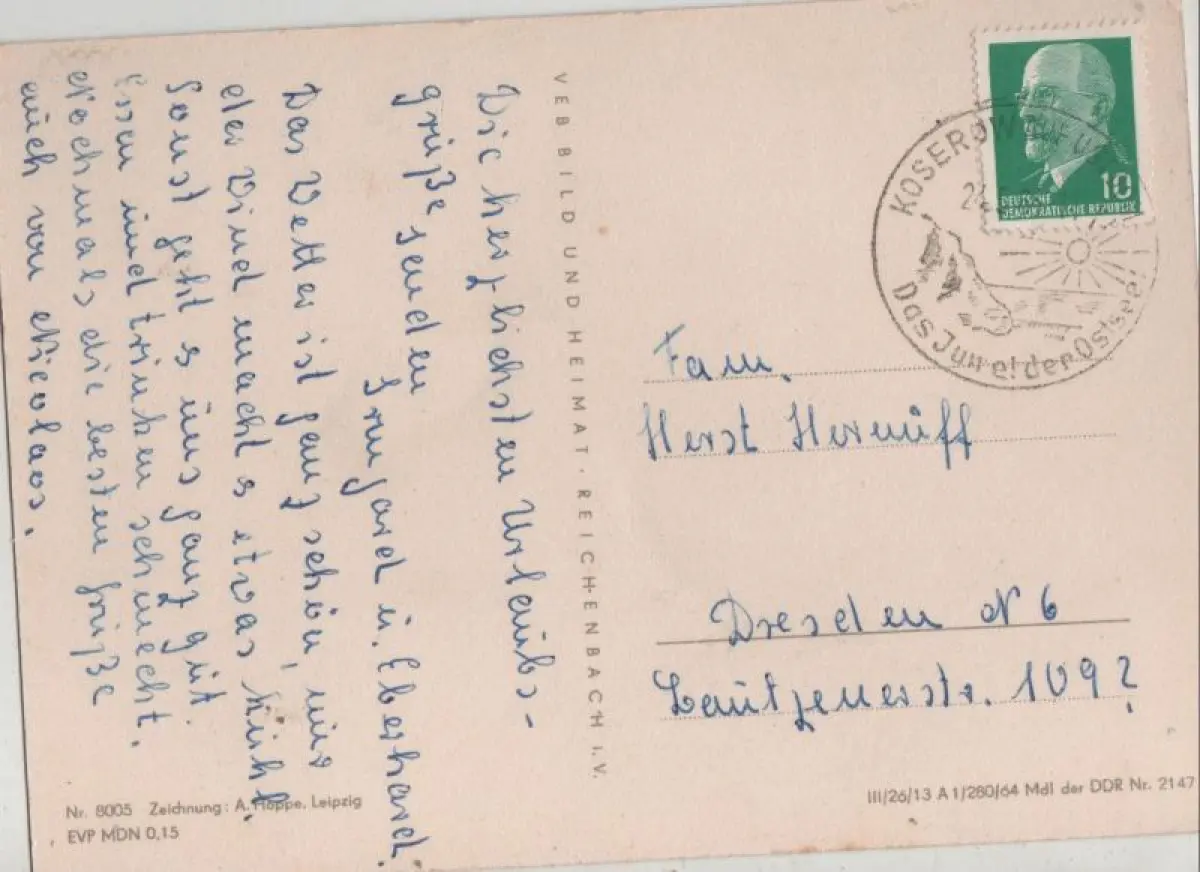 Die herzlichsten Urlaubs-
grüße senden
Irmgard u. Eberhard.
Das Wetter ist ganz schön, nur
der Wind macht es etwas kühl.
Sonst geht es uns ganz gut.
Essen und trinken schmeckt.
Nochmals die besten Grüße
auch von Nicolaos.
VEB BILD UND HEIMAT · REICHENBACH I. V.
DEUTSCHE
DEMOKRATISCHE REPUBLIK
10
KOSEROW
Das Juwel der Ostsee!
Fam.
Horst
Dresden N 6
1092
Nr. 8005 Zeichnung: A. Hoppe, Leipzig
EVP MDN 0,15
III/26/13 A 1/280/64 Mdl der DDR Nr. 2147